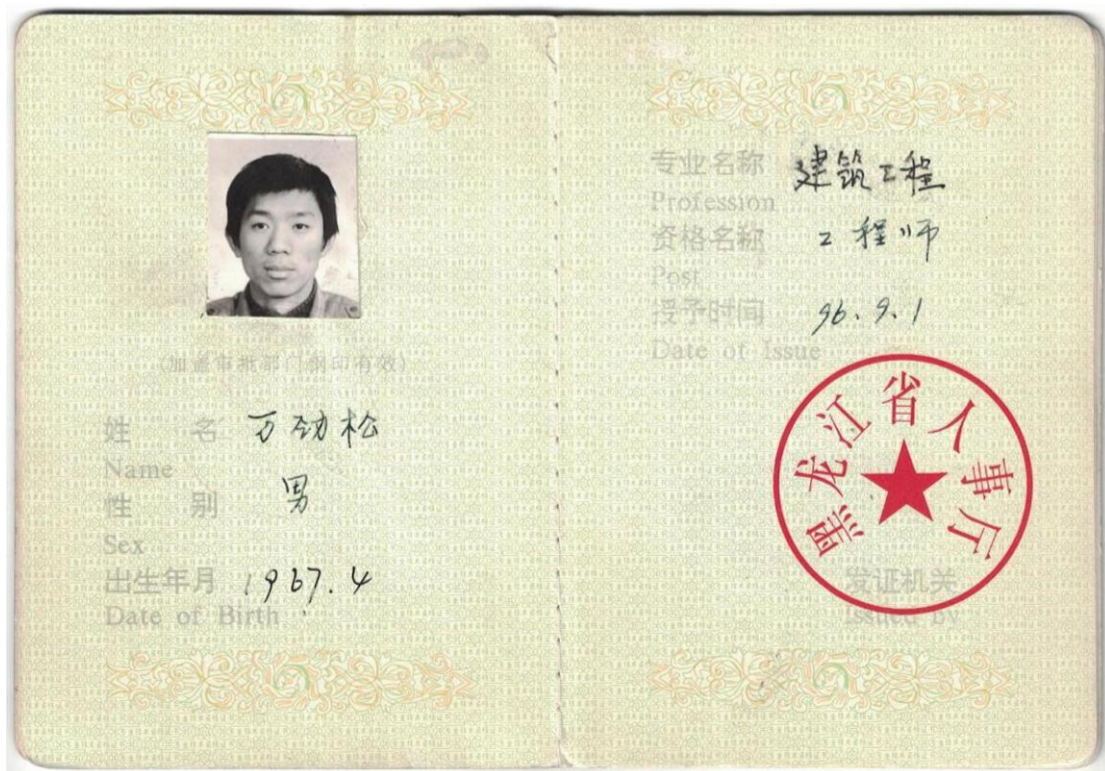 (加盖审批部门钢印有效)
姓 名 万劲松
Name
性 别 男
Sex
出生年月 1967.4
Date of Birth
专业名称 建筑工程
Profession
资格名称 工程师
Post
授予时间 96.9.1
Date of Issue
黑龙江省人事厅
发证机关
Issued by